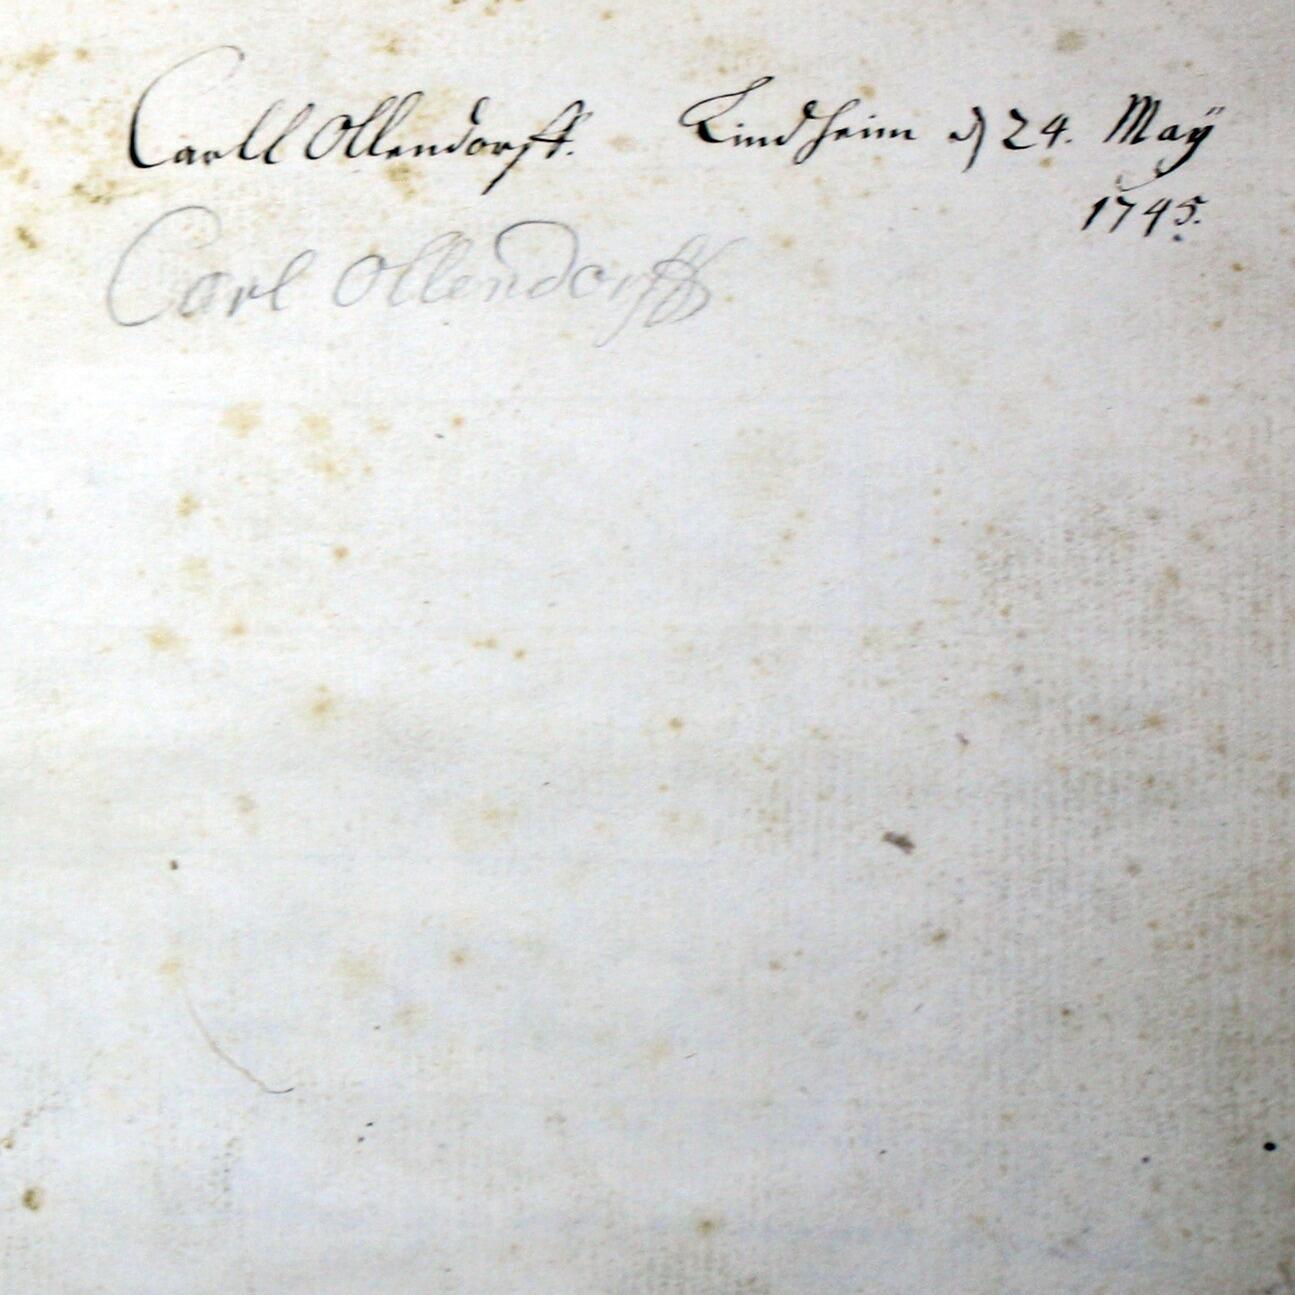 Carll Ollendorff. Lindheim d 24. Maÿ
1745.
Carl Ollendorff